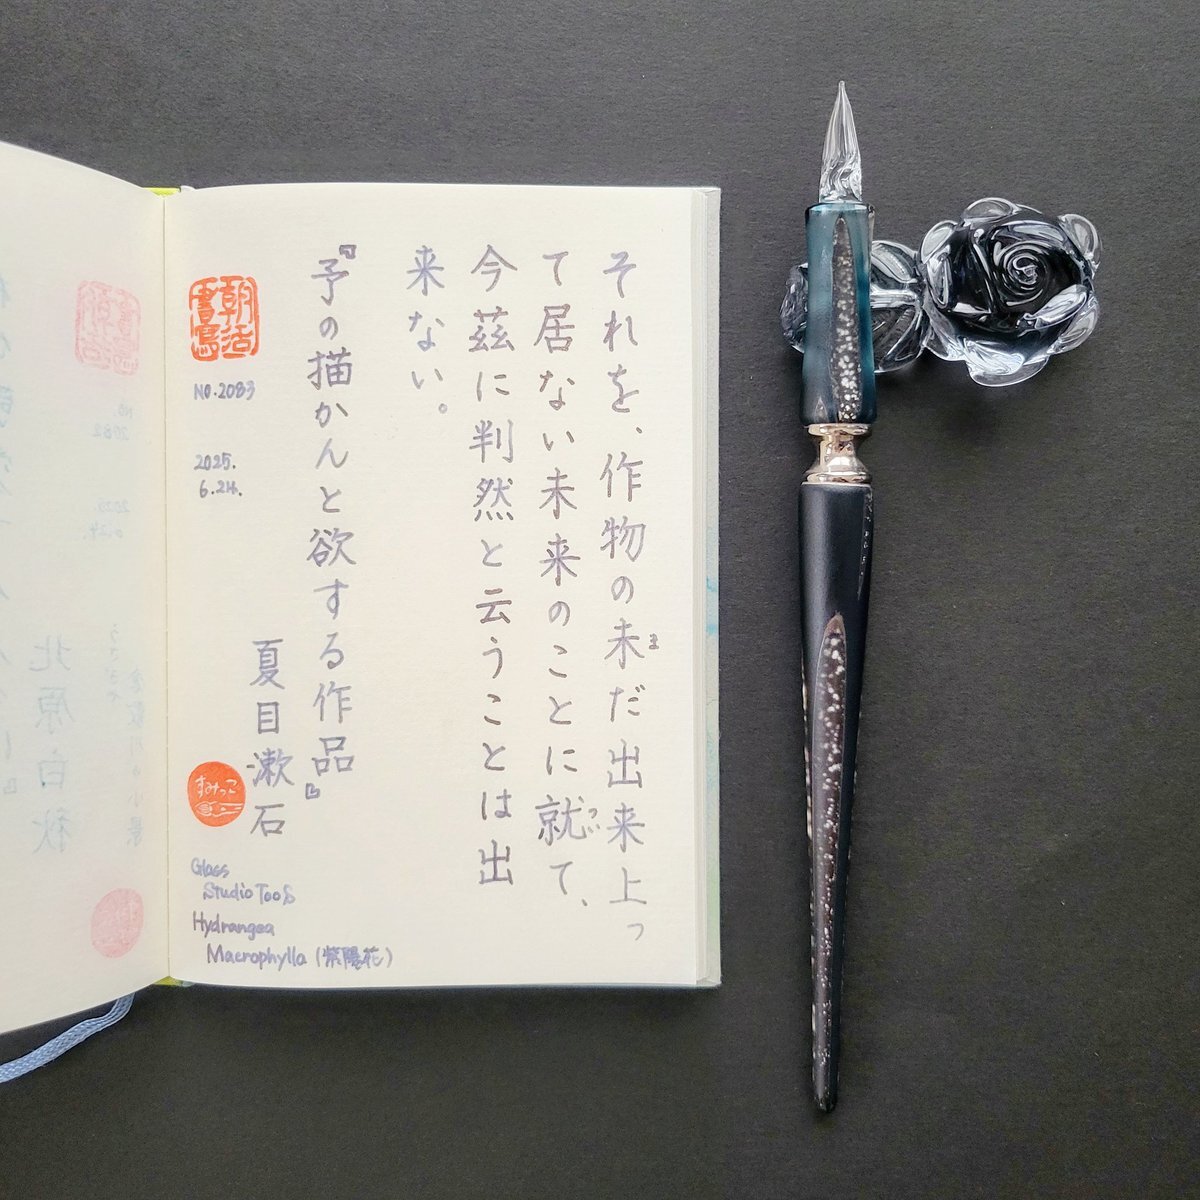 それを、作物の未だ出来上っ
ま
て居ない未来のことに就て、
つい
今茲に判然と云うことは出
来ない。
『予の描かんと欲する作品』
夏目漱石
朝活書写
NO.2083
2025.
6.24.
すみっこ
Glass
Studio TooS
Hydrangea
Macrophylla (紫陽花)
北原白秋